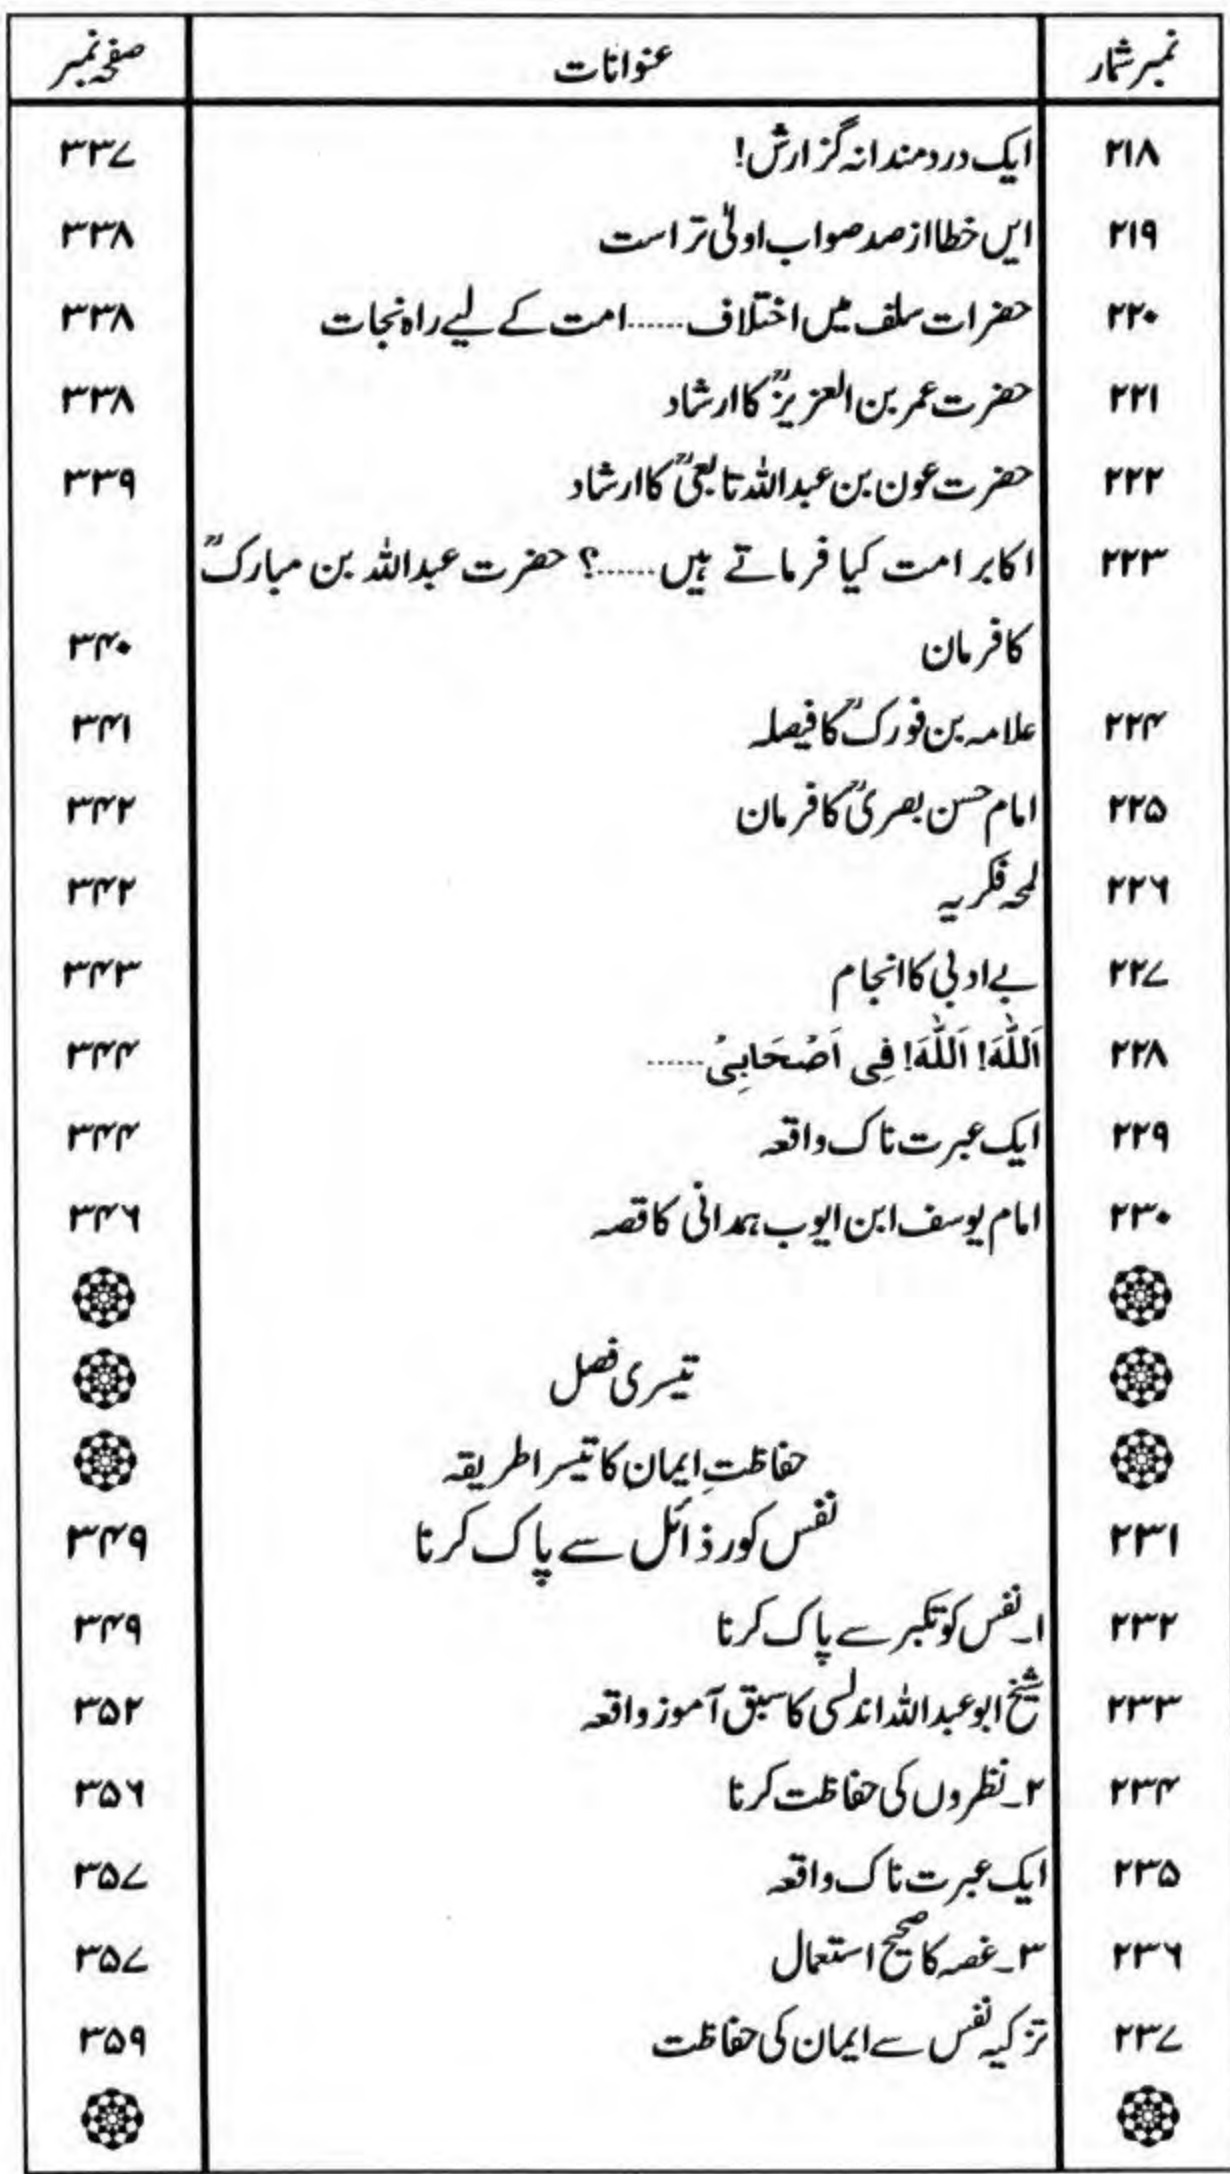 نمبر شمار عنوانات صفحہ نمبر
۲۱۸ ایک دردمندانہ گزارش! ۳۳۷
۲۱۹ ایں خطا از صد صواب اولیٰ تر است ۳۳۸
۲۲۰ حضرات سلف میں اختلاف......امت کے لیے راہ نجات ۳۳۸
۲۲۱ حضرت عمر بن العزیزؒ کا ارشاد ۳۳۸
۲۲۲ حضرت عون بن عبداللہ تابعیؒ کا ارشاد ۳۳۹
۲۲۳ اکابر امت کیا فرماتے ہیں......؟ حضرت عبداللہ بن مبارکؒ
کا فرمان ۳۴۰
۲۲۴ علامہ بن فورکؒ کا فیصلہ ۳۴۱
۲۲۵ امام حسن بصریؒ کا فرمان ۳۴۲
۲۲۶ لمحہ فکریہ ۳۴۲
۲۲۷ بے ادبی کا انجام ۳۴۳
۲۲۸ اَللّٰهَ! اَللّٰهَ! فِی اَصْحَابِیْ...... ۳۴۴
۲۲۹ ایک عبرت ناک واقعہ ۳۴۴
۲۳۰ امام یوسف ابن ایوب ہمدانی کا قصہ ۳۴۶
تیسری فصل
حفاظتِ ایمان کا تیسرا طریقہ
۲۳۱ نفس کو رذائل سے پاک کرنا ۳۴۹
۲۳۲ ۱۔نفس کو تکبر سے پاک کرنا ۳۴۹
۲۳۳ شیخ ابو عبداللہ اندلسی کا سبق آموز واقعہ ۳۵۲
۲۳۴ ۲۔نظروں کی حفاظت کرنا ۳۵۶
۲۳۵ ایک عبرت ناک واقعہ ۳۵۷
۲۳۶ ۳۔غصہ کا صحیح استعمال ۳۵۷
۲۳۷ تزکیہ نفس سے ایمان کی حفاظت ۳۵۹